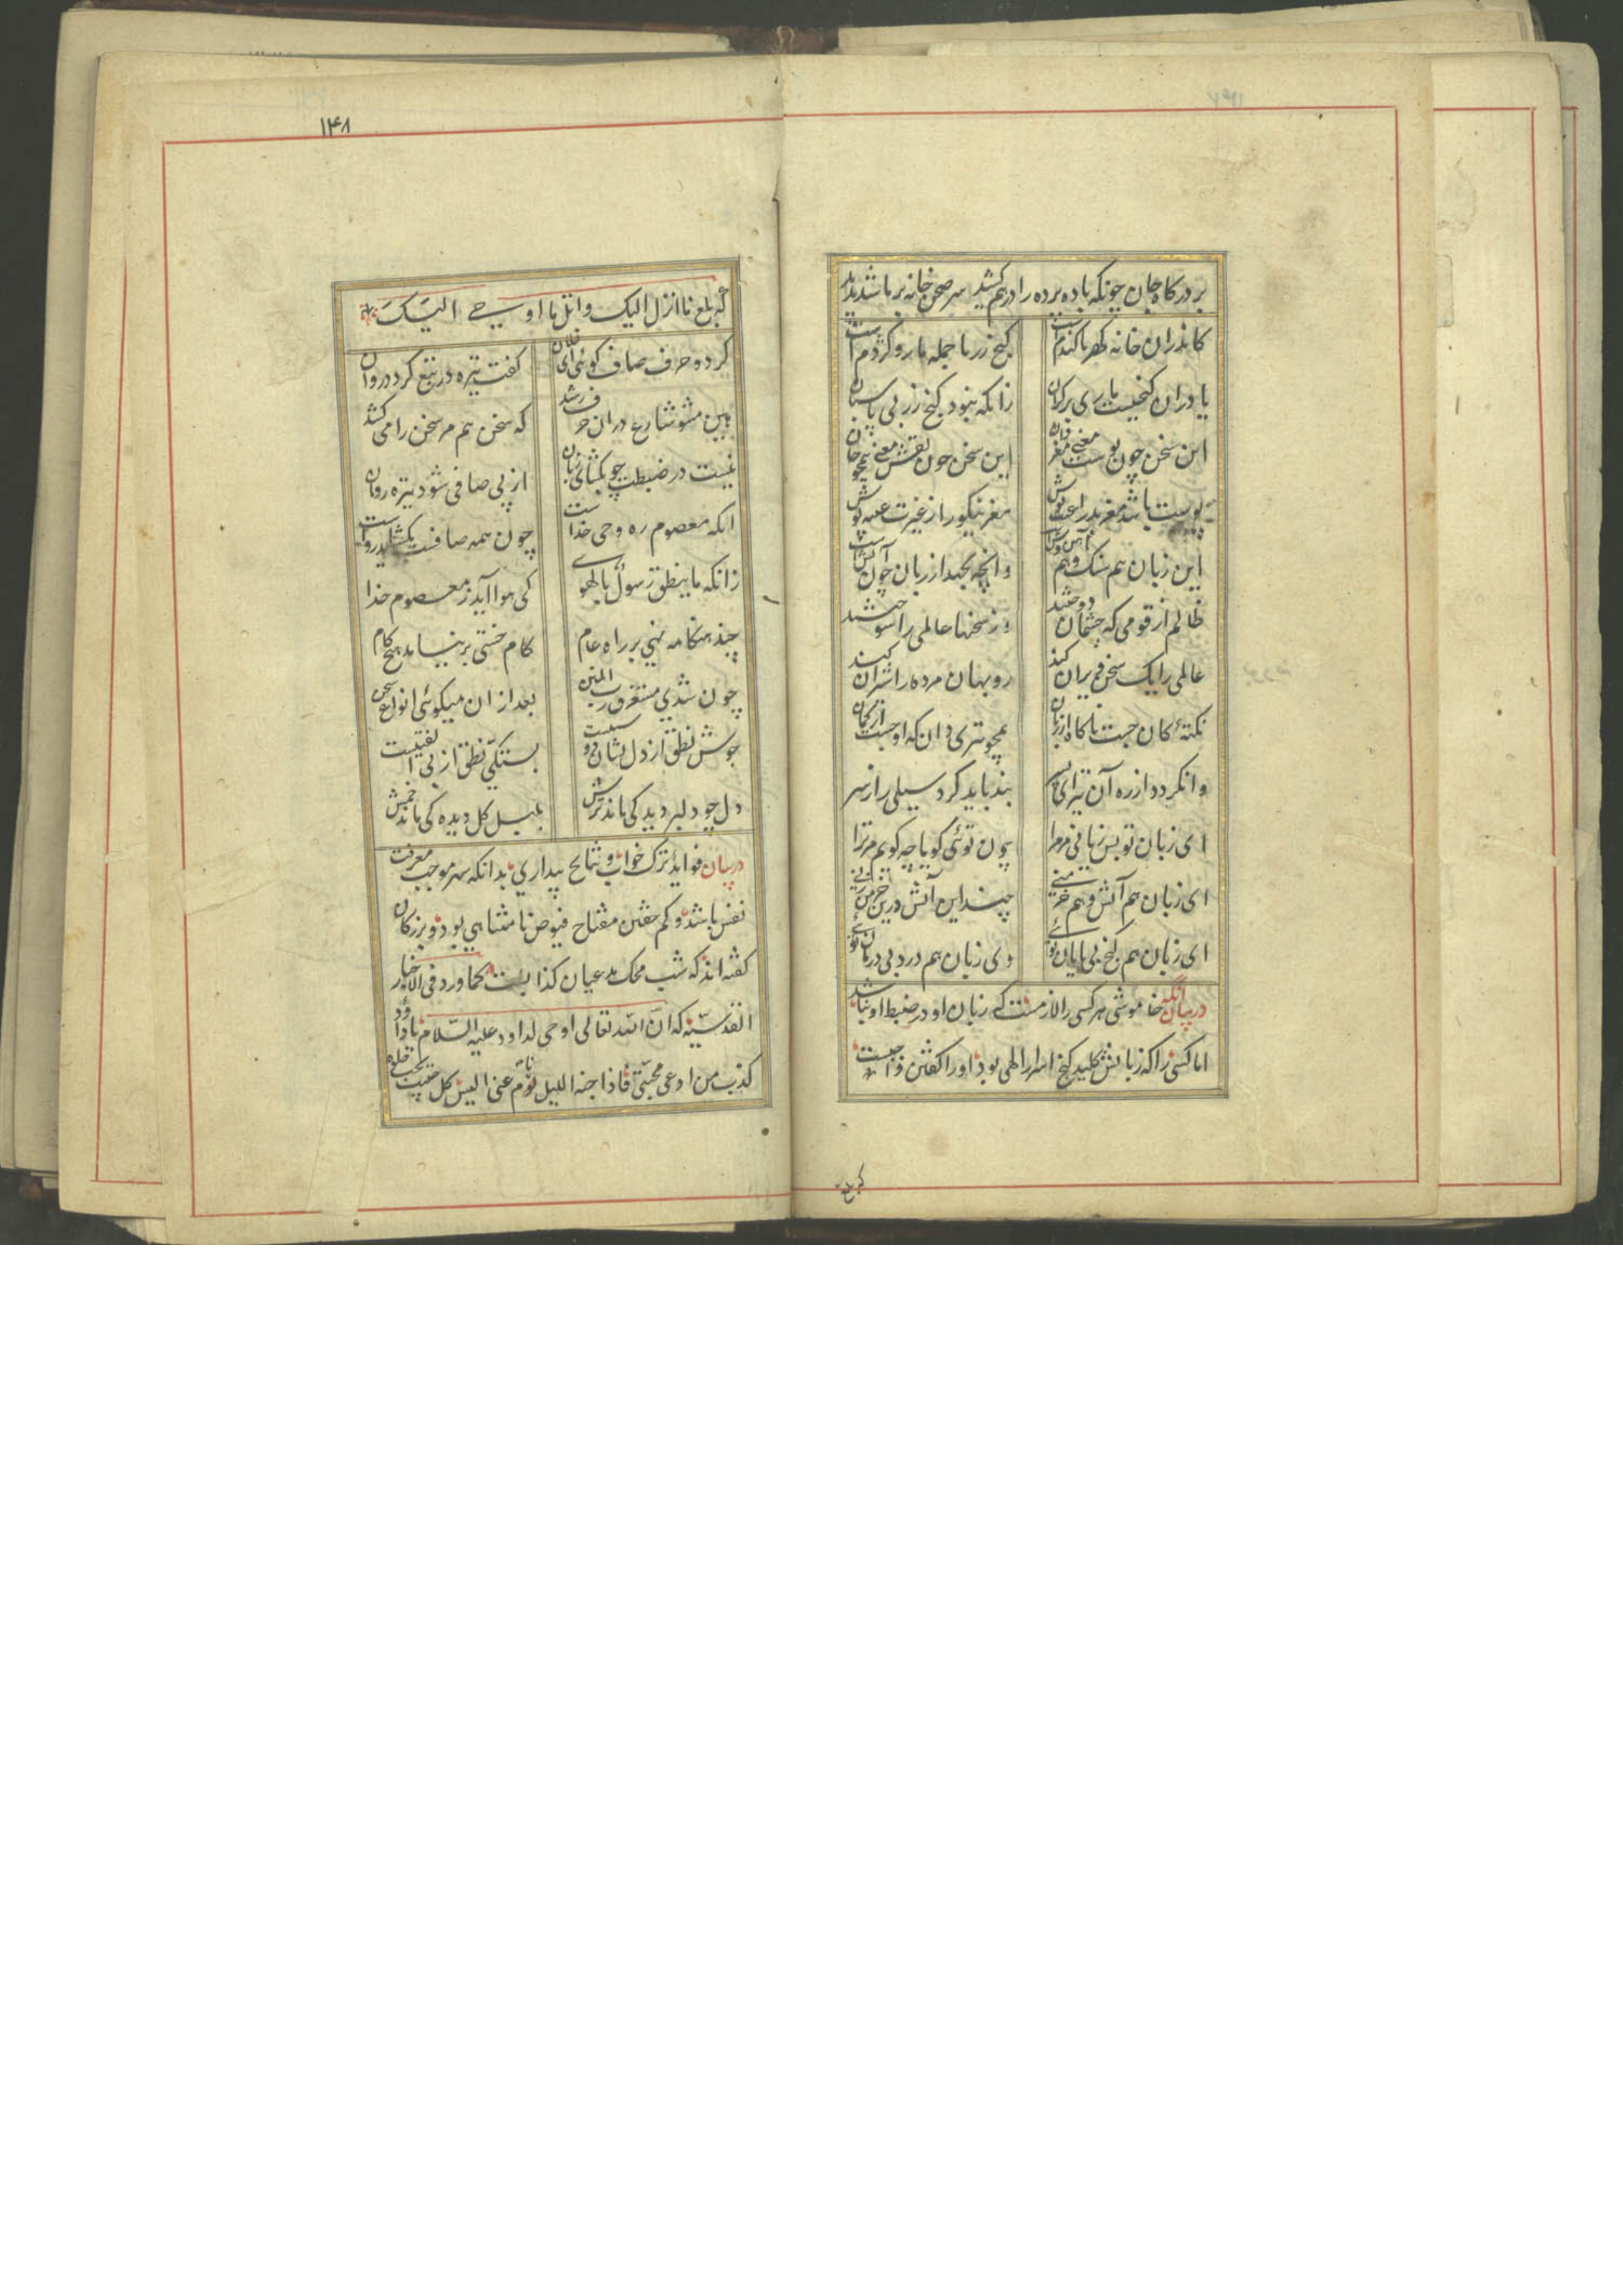 بر درکاه جان چونکه باده پرده را درهم کشید سر صحن خانه بر ما شد پدید
کاندران خانه کهر یا کندم است کنج زر یا جمله مار و کژدم است
یا دران کنجیست ماری بر کران زانکه نبود کنج زر بی پاسبان
این سخن چون پوست معنی مغز دان این سخن چون نقش معنی همچو جان
پوست باشد مغز بد را عیب پوش مغز نیکو را ز غیرت غیب پوش
این زبان هم سنک و هم آهن وش است وانچه بجهد از زبان چون آتش است
ظالم از قومی که چشمان دوختند وز سخنها عالمی را سوختند
عالمی را یک سخن ویران کند روبهان مرده را شیران کند
نکتهٔ کان جست ناکاه از زبان همچو تیری دان که او جست از کمان
وانکردد از ره آن تیر ای پسر بند باید کرد سیلی را ز سر
ای زبان تو بس زیانی مر مرا چون توئی کویا چه کویم مر ترا
ای زبان هم آتش و هم خرمنی چند این آتش درین خرمن زنی
ای زبان هم کنج بی پایان توئی وی زبان هم درد بی درمان توئی
در بیان آنکه خاموشی هر کسی را لازمست که زبان او در ضبط او نباشد
اما کسی را که زبانش کلید کنج اسرار الهی بود او را کفتن واجبست
که بلغ
۱۴۸
که بلغ ما انزل الیک واتل ما اوحی الیک
کر دو حرف صاف کوئی ای فلان کفت تیره در تبع کردد روان
بین مشو شارع دران حرف رشد که سخن هم مر سخن را می کشد
نیست در ضبطت چو بکشائی زبان از پی صافی شود تیره روان
انکه معصوم ره وحی خداست چون همه صافست بکشاید رواست
زانکه ما ینطق رسول بالهوی کی هوا آید ز معصوم خدا
چند هنکامه نهی بر راه عام کام خستی بر نیامد هیچ کام
چون شدی مستغرق رب المنن بعد ازان میکوئی انواع سخن
جوش نطق از دل نشان دوستیست بستکی نطق از بی الفتیست
دل چو دلبر دید کی ماند ترش بلبل کل دیده کی ماند خمش
در بیان فواید ترک خواب و نتایج بیداری بدانکه سهر موجب معرفت
نفس باشد و کم خفتن مفتاح فیوض نامتناهی بود و بزرکان
کفته اند که شب محک مدعیان کذابست کما ورد فی الاخبار
القدسیه که ان الله تعالی اوحی لداود علیه السلام یا داود
کذب من ادعی محبتی فاذا جنه اللیل نام نوم عنی الیس کل حبیب یحب خلوة